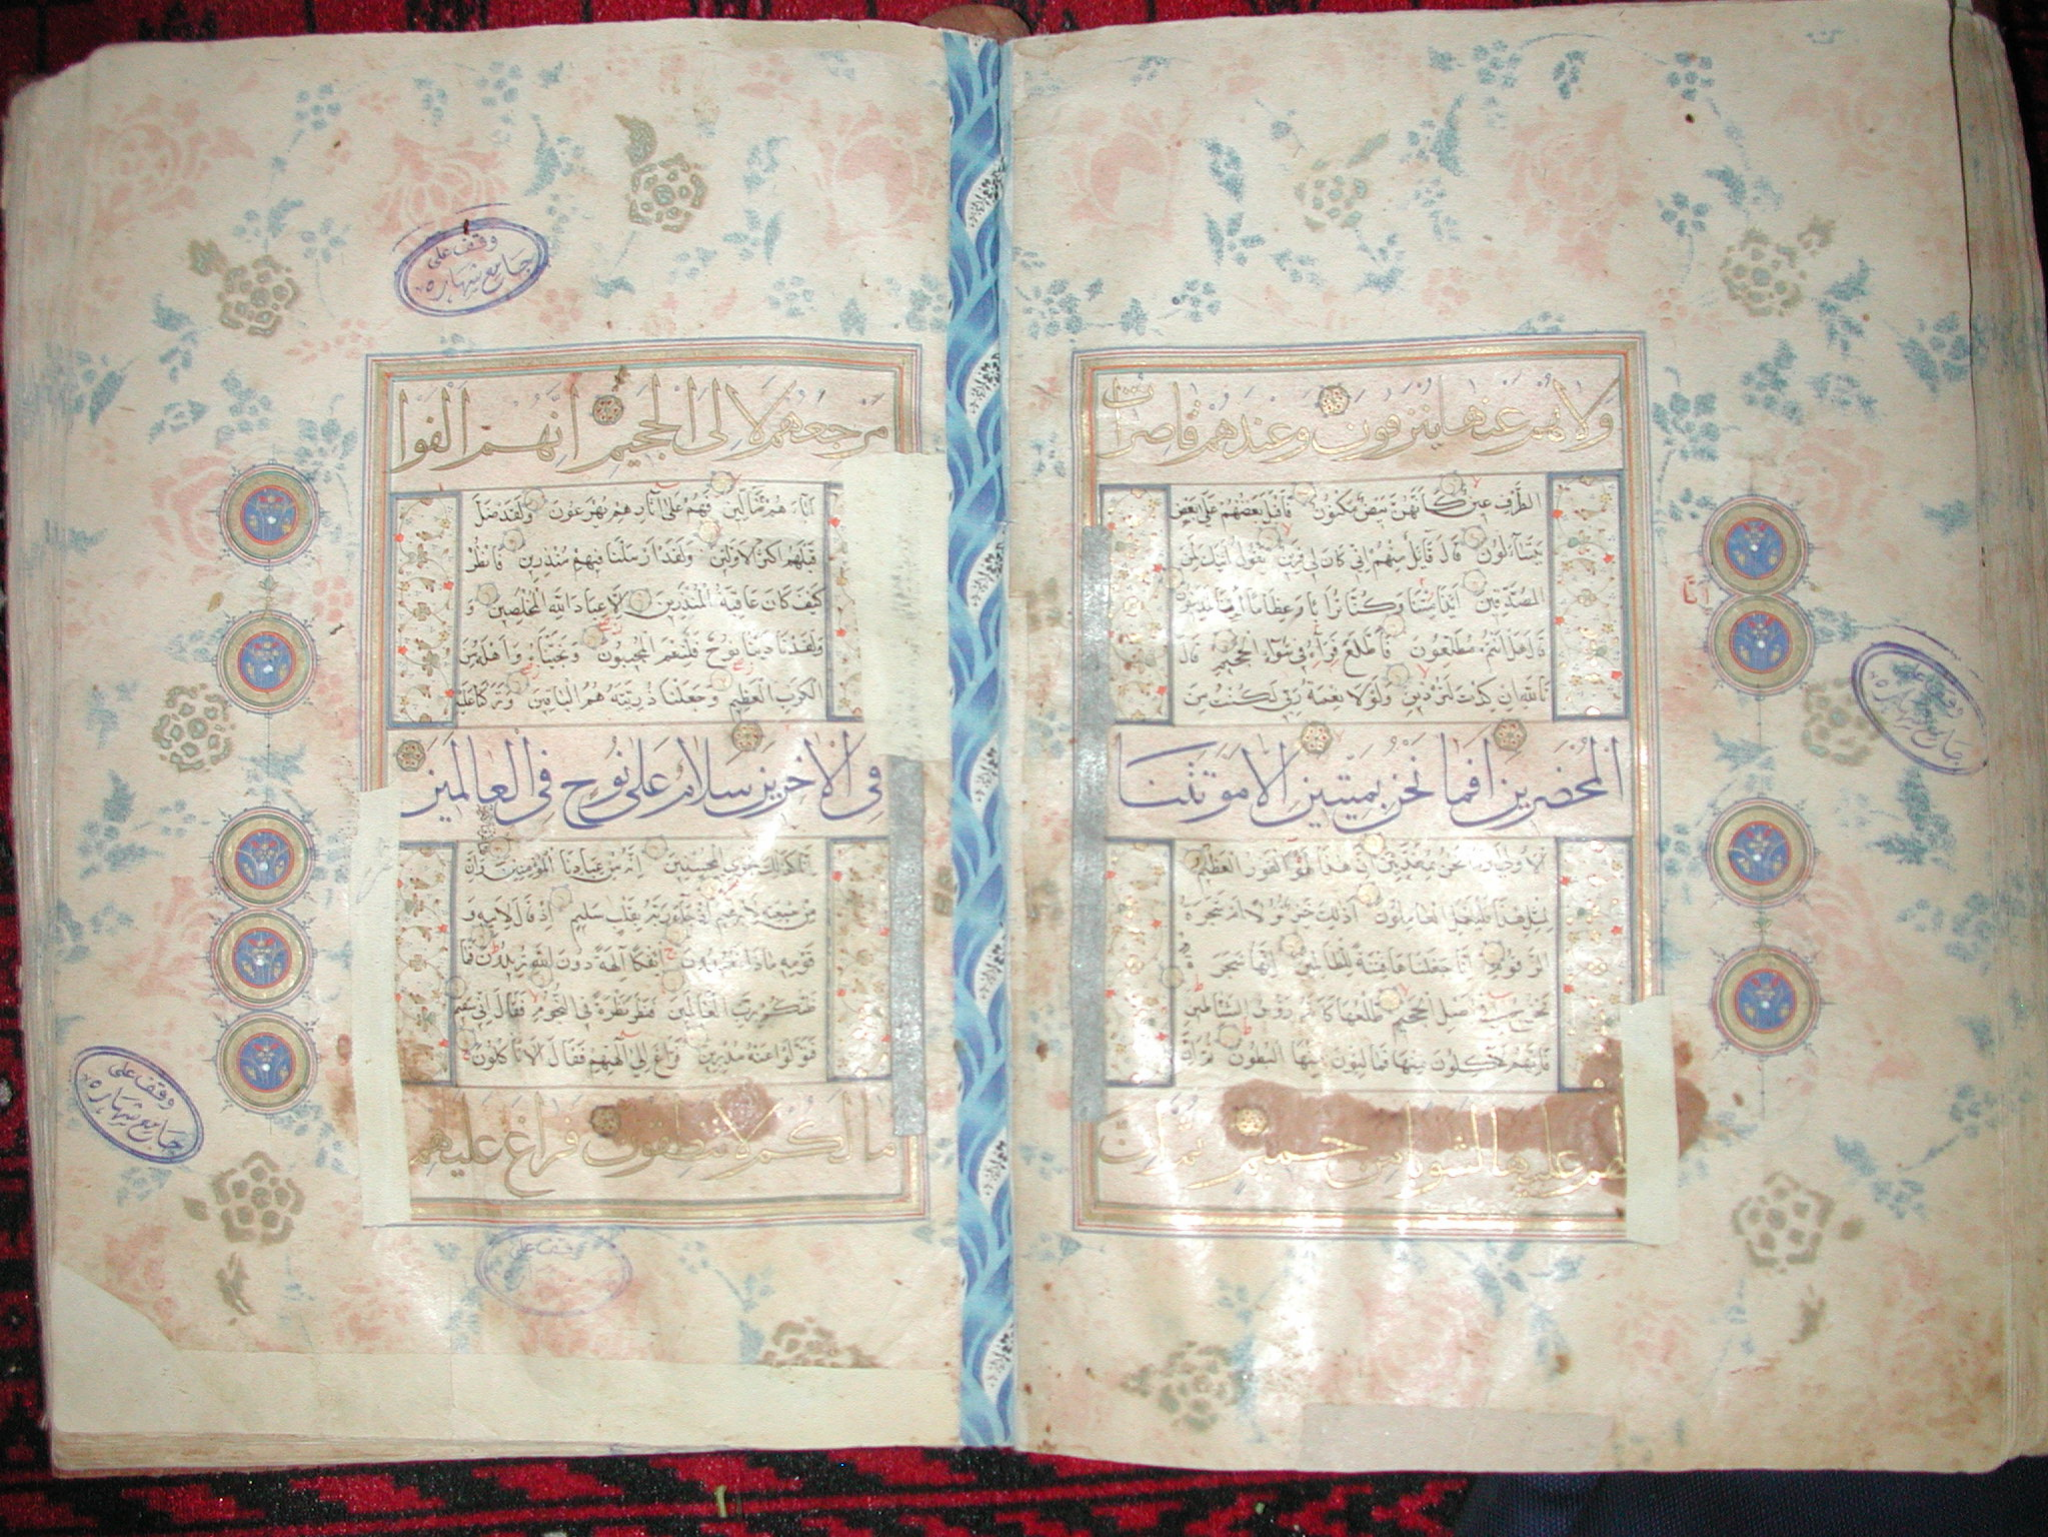 ولا هم عنها ينزفون وعندهم قاصرات
الطرف عين كانهن بيض مكنون فاقبل بعضهم على بعض
يتساءلون قال قائل منهم اني كان لي قرين يقول ائنك لمن
المصدقين ائذا متنا وكنا ترابا وعظاما ائنا لمدينون
قال هل انتم مطلعون فاطلع فرآه في سواء الجحيم قال
تالله ان كدت لتردين ولولا نعمة ربي لكنت من
المحضرين افما نحن بميتين الا موتتنا
الاولى وما نحن بمعذبين ان هذا لهو الفوز العظيم
لمثل هذا فليعمل العاملون اذلك خير نزلا ام شجرة
الزقوم انا جعلناها فتنة للظالمين انها شجرة
تخرج في اصل الجحيم طلعها كانه رؤوس الشياطين
فانهم لآكلون منها فمالئون منها البطون ثم ان
لهم عليها لشوبا من حميم ثم ان
وقف على
جامع شهاره
مرجعهم لا لى الجحيم انهم الفوا
آباءهم ضالين فهم على آثارهم يهرعون ولقد ضل
قبلهم اكثر الاولين ولقد ارسلنا فيهم منذرين فانظر
كيف كان عاقبة المنذرين الا عباد الله المخلصين و
ولقد نادينا نوح فلنعم المجيبون ونجيناه واهله من
الكرب العظيم وجعلنا ذريته هم الباقين وتركنا عليه
في الاخرين سلام على نوح في العالمين
انا كذلك نجزي المحسنين انه من عبادنا المؤمنين وان
من شيعته لابرهيم اذ جاء ربه بقلب سليم اذ قال لابيه و
قومه ماذا تعبدون ائفكا آلهة دون الله تريدون فما
ظنكم برب العالمين فنظر نظرة في النجوم فقال اني سقيم
فتولوا عنه مدبرين فراغ الى آلهتهم فقال الا تاكلون
ما لكم لا تنطقون فراغ عليهم
وقف على
جامع شهاره
وقف على
جامع شهاره
وقف على